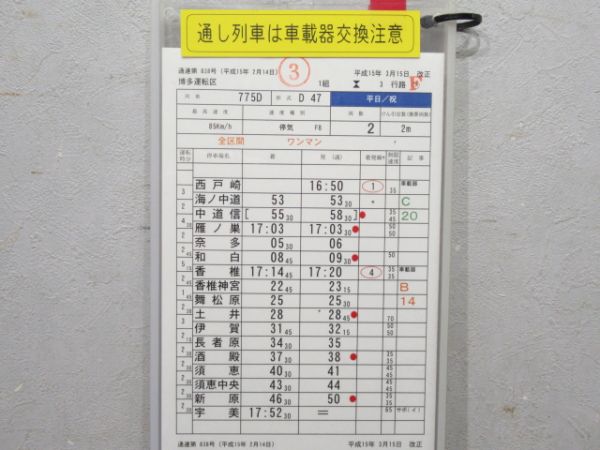 通し列車は車載器交換注意
通達第 038号 (平成15年 2月14日) 3 平成15年 3月15日 改正
博多運転区 1組 3 行路 E
列番 775D 形式 D 47 平日/祝
最高速度 速度種別 両数 けん引定数(換算両数)
85Km/h 停気 F8 2 2m
全区間 ワンマン
運転時分 停車場名 着 発 (通) 着発線 制限速度 記事
西戸崎 16:50 1 35 車載器
3 海ノ中道 53 53 30 C
中道信 [ 55 30 58 30 ] 35 45 20
雁ノ巣 17:03 17:03 30 50 50
奈多 05 30 06
和白 08 45 09 30 50
香椎 17:14 45 17:20 4 35 35 車載器
香椎神宮 22 45 23 15 B
舞松原 25 25 30 14
土井 28 28 45 70
伊賀 31 45 32 15 50 50
長者原 34 30 35
酒殿 37 30 38 35 35
須恵 40 30 41
須恵中央 43 30 44
新原 46 30 50
宇美 17:52 30 =
通達第 038号 (平成15年 2月14日) 平成15年 3月15日 改正